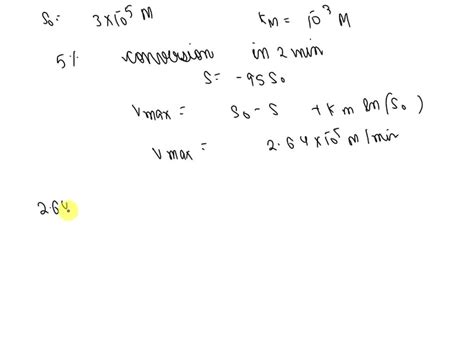 S₀= 3×10⁻⁵ M KM = 10⁻³ M
5% conversion in 2 min
S= -95S₀
Vmax = S₀-S + Km ln(S₀)
Vmax = 2.64×10⁻⁵ M/min
2.64